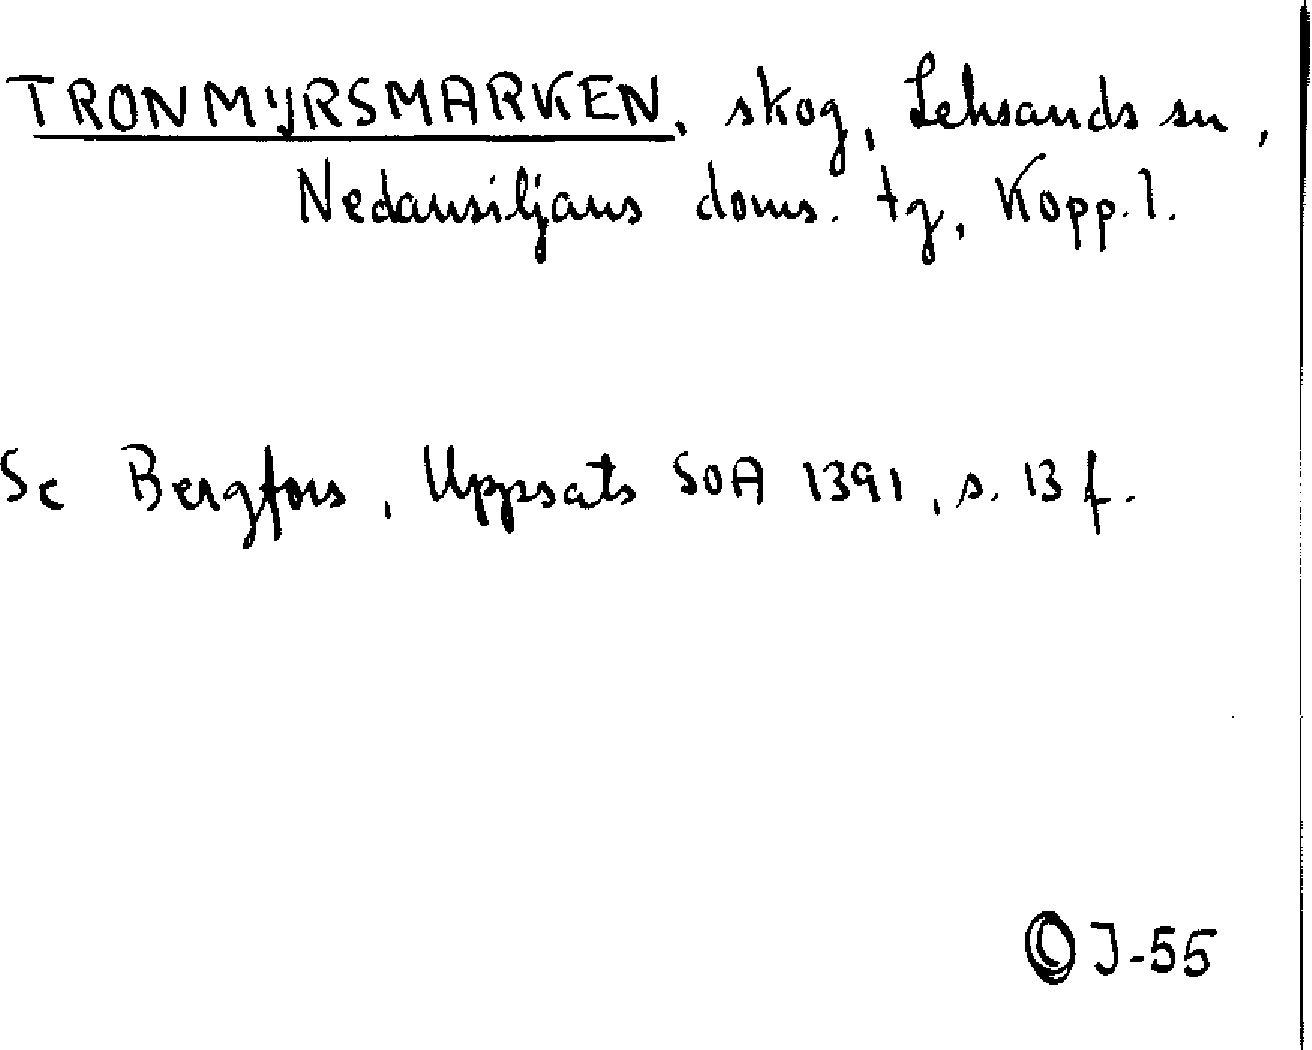 TRONMYRSMARKEN, skog, Leksands sn,
Nedansiljans doms. tg, Kopp. l.
Se Bergfors, Uppsats SOA 1391, s. 13 f.
© J-55